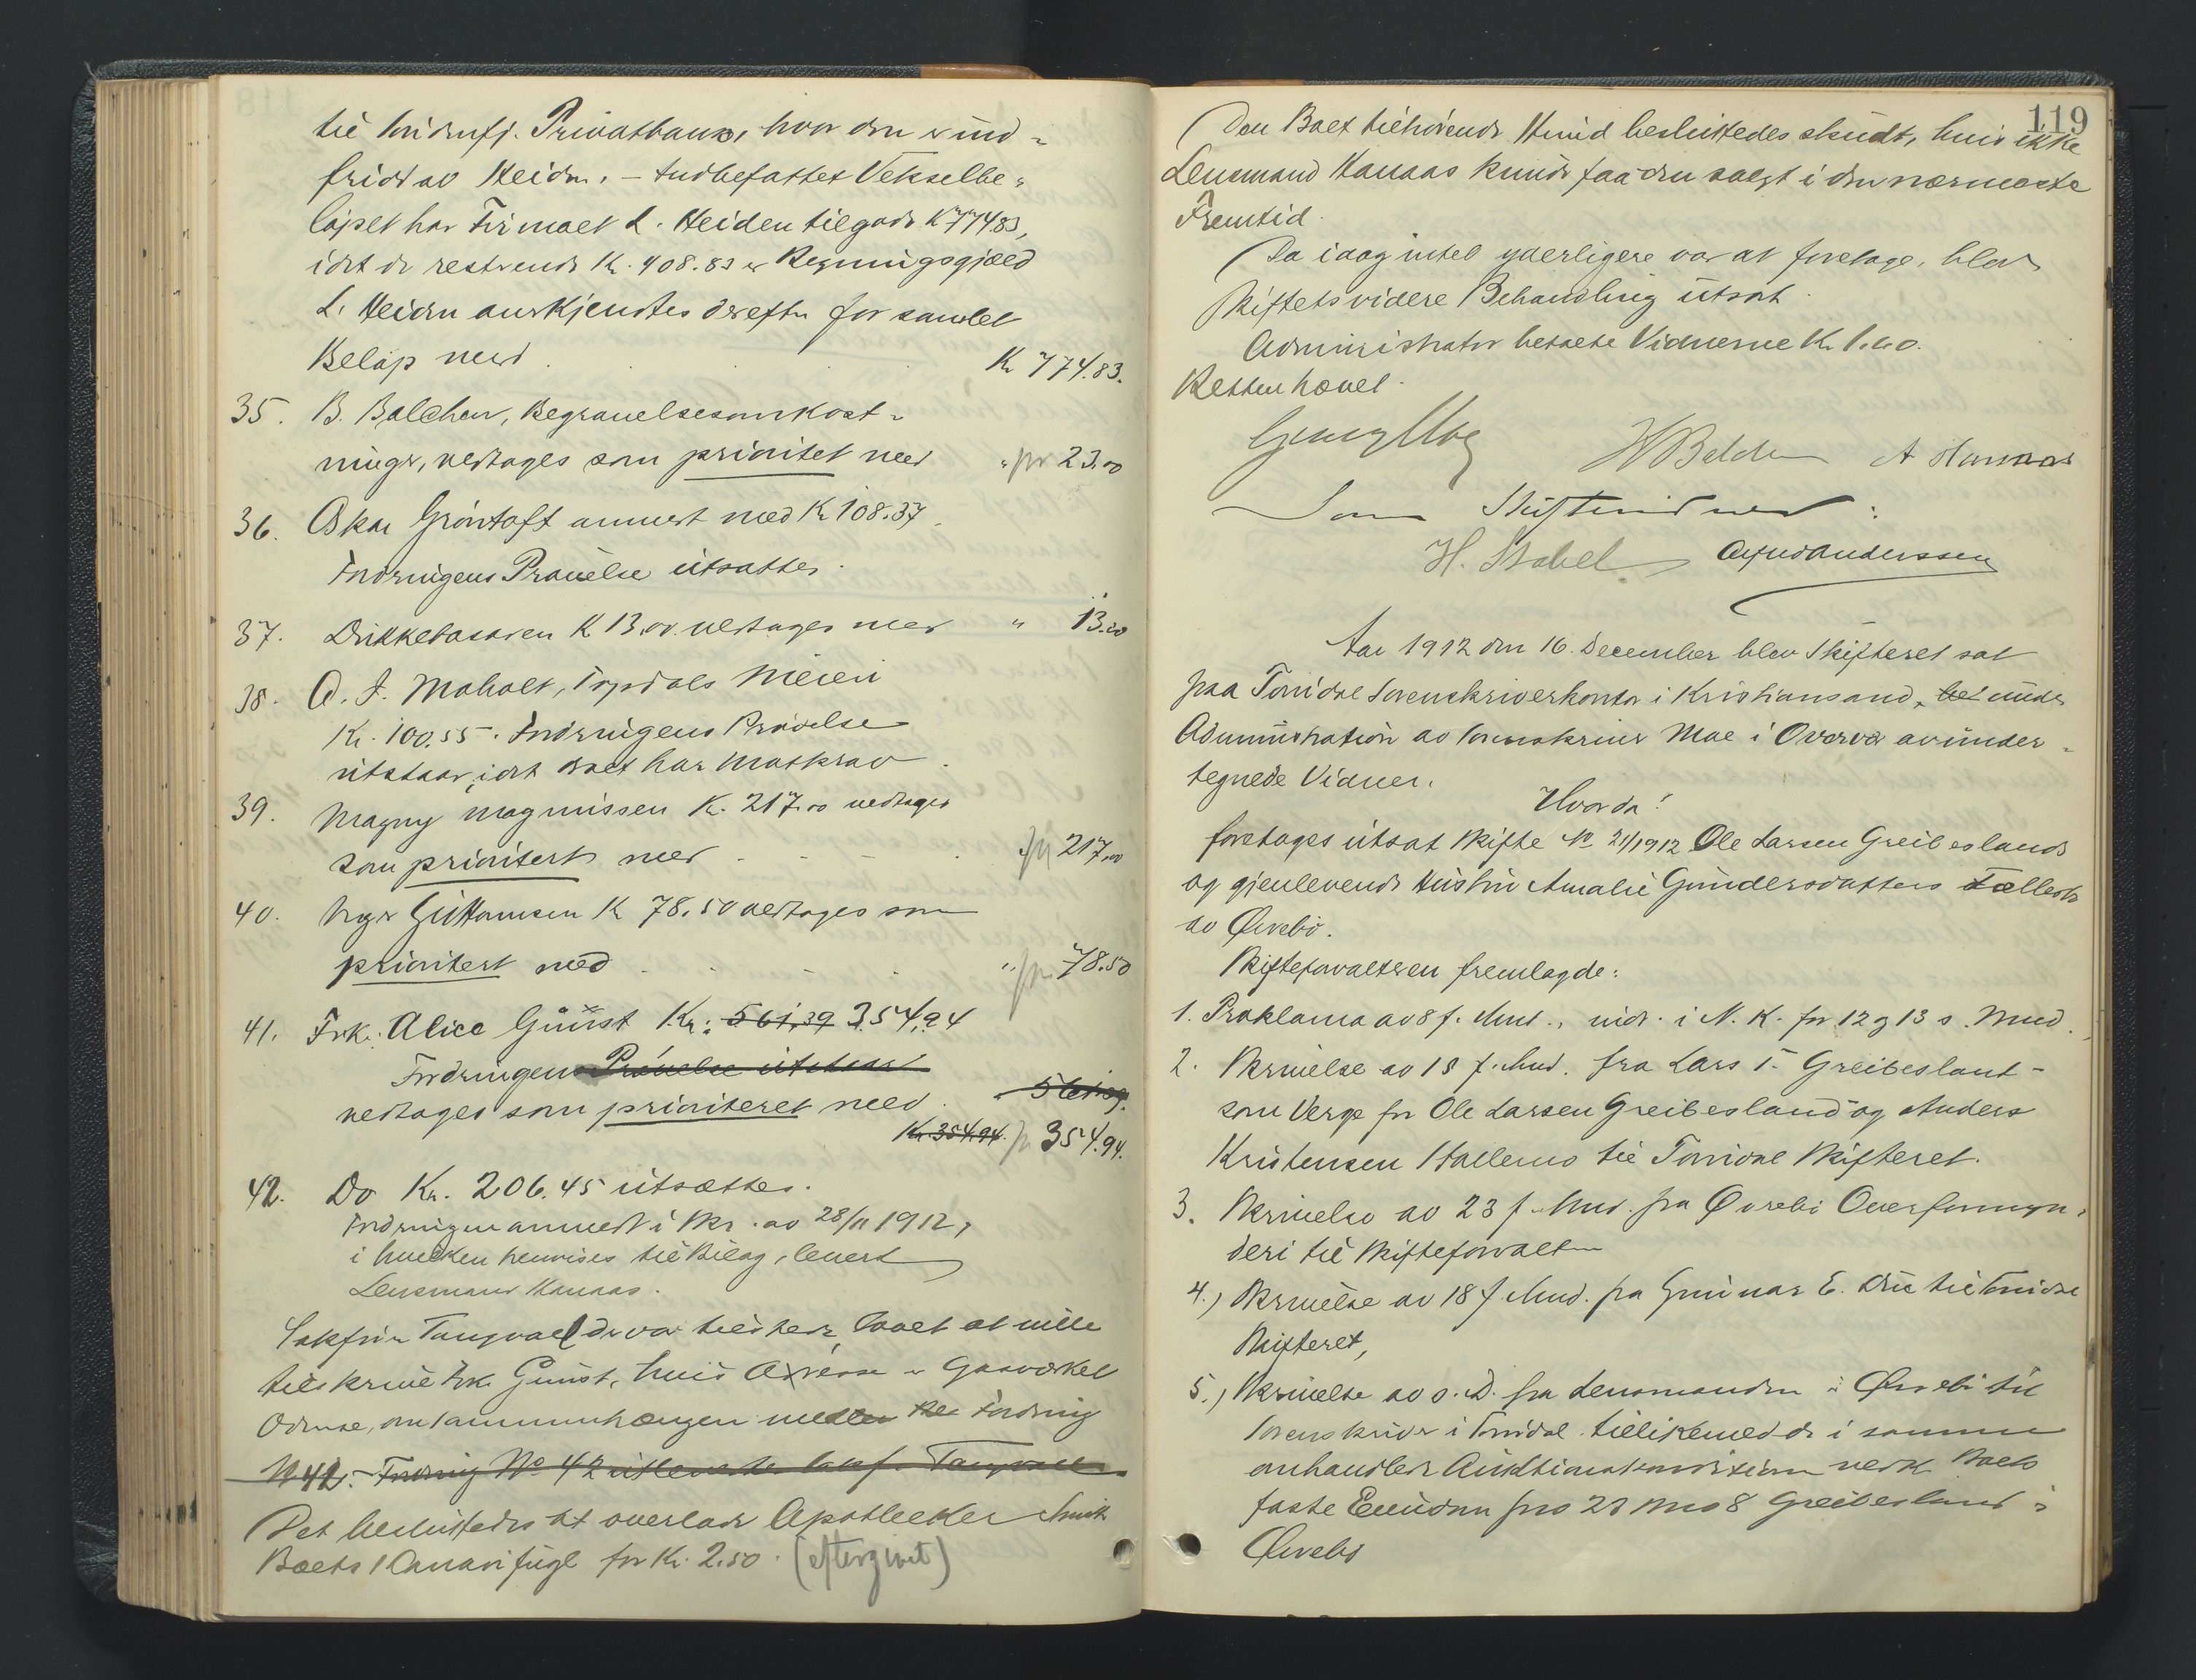 til Privatbank, hvor den er ind-
friet av Heiden. – Vekselbe-
löpet har Firmaet L. Heiden tilgode Kr 774.83,
idet de resterende Kr. 408.83 er Regningsgjæld
L. Heiden anerkjendtes derefter for samlet
Belöp med Kr 774.83.
35. B. Balchen, Begravelsesomkost-
ninger, vedtages som prioritet med " pr 23.00
36. Oskar Gröntoft anmeldt med Kr 108.37
Fordringens Prövelse utsættes.
37. Drikkebasaren K 13.00 vedtages med " 13.00
38. O. J. Moholt, Meieri
Kr. 100.55. Fordringens Prövelse
utstaar, idet Boet har Motkrav.
39. Magny Magnussen Kr. 217.00 vedtages
som prioritert med pr 217.00
40. Guttormsen K 78.50 vedtages som
prioritert med " pr 78.50
41. Frk. Alice Günst Kr: 561,39 354,94
Fordringens Prövelse utstaar
vedtages som prioriteret med. 561.39.
Kr. 354.94. pr 354.94.
42. Do Kr. 206.45 utsættes.
Fordringen anmeldt i Skr. av 28/11 1912,
i hvilken henvises til Bilag, levert
Lensmand Hanaas.
Sakförer Tangvald der var tilstede lovet at ville
tilskrive Frk. Günst, hvis Adresse er Gasværket
Odense, om sammenhængen med Fordring
N 42. – Fordring No 42 Sakf. Tangvald.
Det besluttedes at overlade Apotheker
Boets 1 Kanarifugl for Kr. 2.50. (eftergivet)
119
Den Boet tilhörende Hund besluttedes skudt, hvis ikke
Lensmand Hanaas kunde faa den solgt i den nærmeste
Fremtid.
Da idag intet yderligere var at foretage, blev
Skiftets videre Behandling utsat.
Administrator betalte Vidnerne K. 1.60.
Retten hævet.
A Hanaas
Som Skiftevidner:
H. Stabel Anderssen
Aar 1912 den 16. December blev Skifteret sat
paa Torridal Sorenskriverkontor i Kristiansand, under
Administration av Sorenskriver Moe i Overvær av under-
tegnede Vidner.
Hvorda!
foretages utsat Skifte No 21/1912 Ole Larsen Greibeslands
og gjenlevende Hustru Amalie Gundersdatters Fællesbo
av Övrebö.
Skifteforvalteren fremlagde:
1. Proklama av 8 f. Mnd., indr. i N. K. for 12 og 13 s. Mnd.
2. Skrivelse av 18 f. Mnd. fra Lars T. Greibesland –
som Verge for Ole Larsen Greibesland og Anders
Kristensen til Torridal Skifteret.
3. Skrivelse av 23 f. Mnd. fra Övrebö Overformyn-
deri til Skifteforvalteren
4.) Skrivelse av 18 f. Mnd. fra Gunnar E. til Torridal
Skifteret,
5.) Skrivelse av s. D. fra Lensmanden i Övrebö til
Sorenskriver i Torridal tillikemed de i samme
omhandlede Auktionskonditioner vedk. Boets
faste Eiendom gno 23 bno 8 Greibesland i
Övrebö